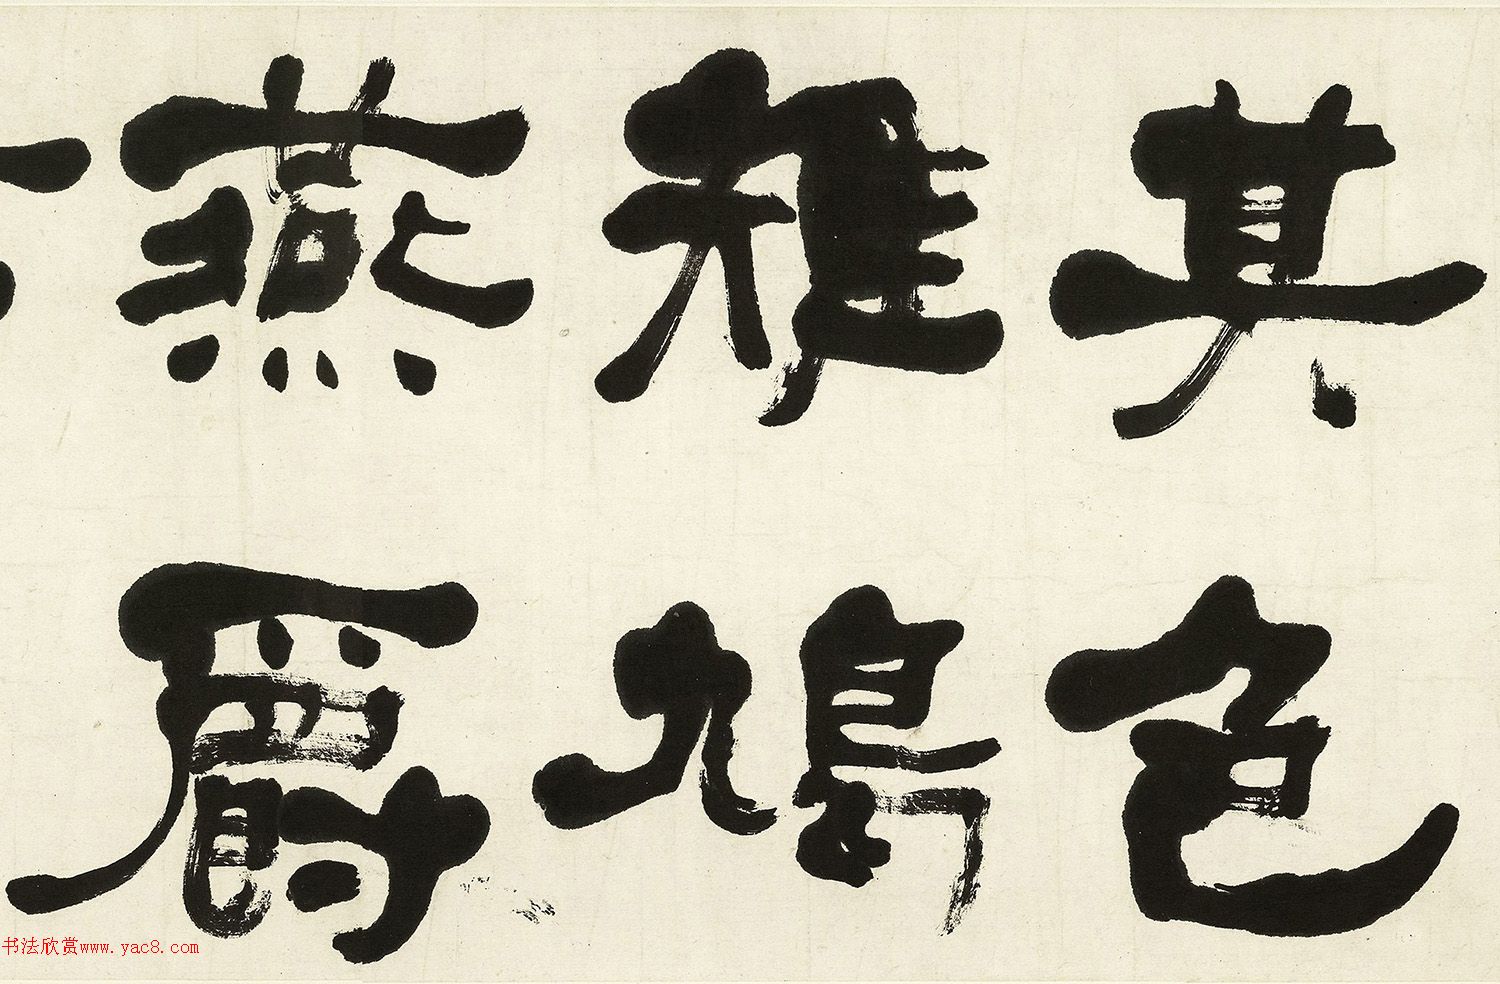 其色
雅鳩
燕爵
书法欣赏www.yac8.com